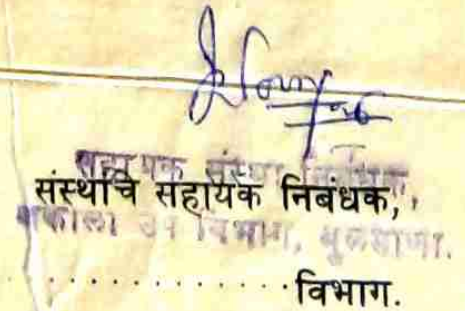 सहायक संस्था निबंधक,
संस्थांचे सहायक निबंधक,
अकोला उप विभाग, बुलडाणा.
............विभाग.